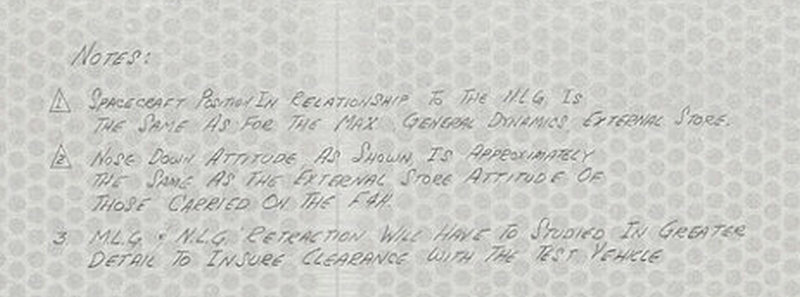 NOTES:
1. SPACECRAFT POSITION IN RELATIONSHIP TO THE N.L.G. IS
THE SAME AS FOR THE MAX. GENERAL DYNAMICS EXTERNAL STORE.
2 NOSE DOWN ATTITUDE, AS SHOWN, IS APPROXIMATELY
THE SAME AS THE EXTERNAL STORE ATTITUDE OF
THOSE CARRIED ON THE F4H.
3. M.L.G. & N.L.G. RETRACTION WILL HAVE TO STUDIED IN GREATER
DETAIL TO INSURE CLEARANCE WITH THE TEST VEHICLE